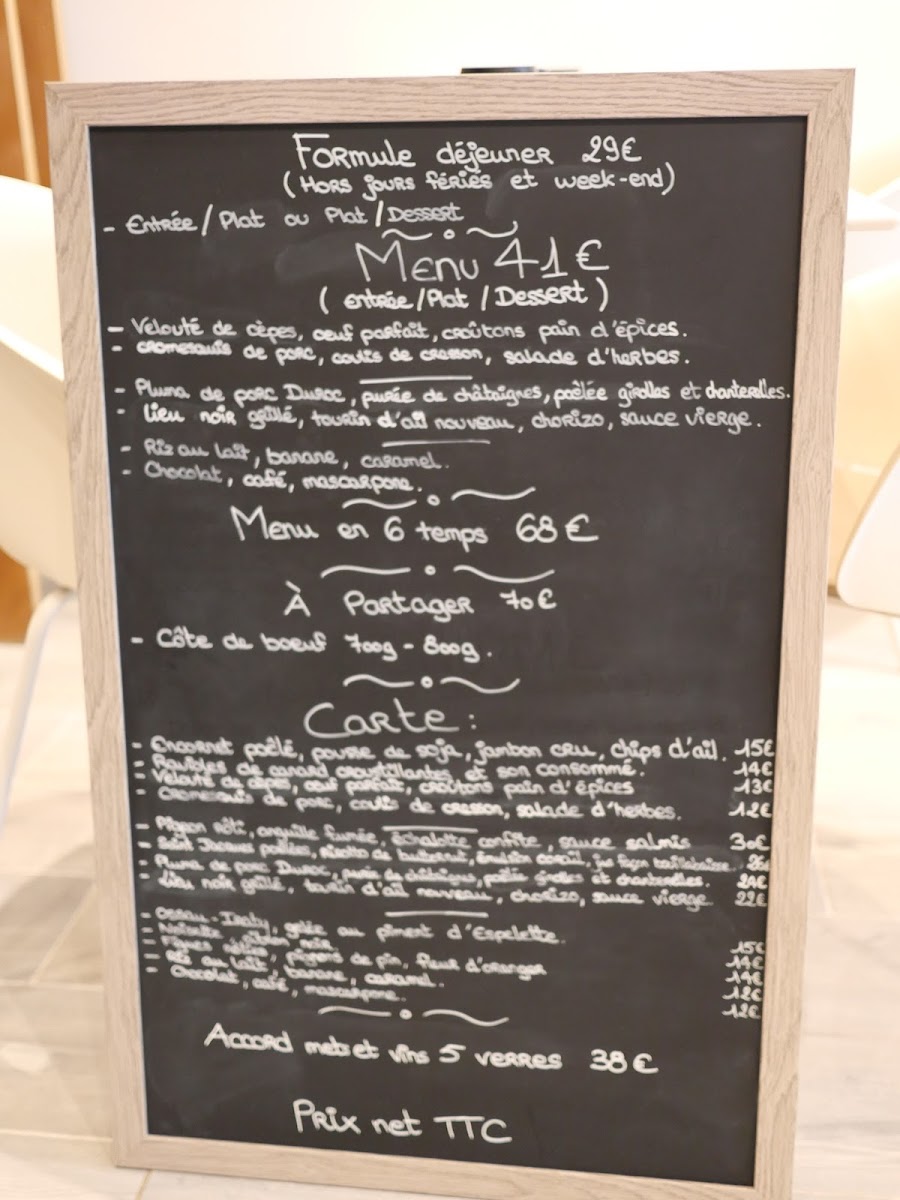 Formule déjeuner 29€
(Hors jours fériés et week-end)
- Entrée/Plat ou Plat/Dessert
Menu 41€
(entrée/Plat/Dessert)
- Velouté de cèpes, oeuf parfait, croûtons pain d'épices.
- cromesquis de porc, coulis de cresson, salade d'herbes.
- Pluma de porc Duroc, purée de châtaignes, poêlée girolles et chanterelles.
- Lieu noir grillé, tourin d'ail nouveau, chorizo, sauce vierge.
- Riz au lait, banane, caramel.
- Chocolat, café, mascarpone.
Menu en 6 temps 68€
À Partager 70€
- Côte de boeuf 700g - 800g.
Carte:
- Encornet poêlé, pousse de soja, jambon cru, chips d'ail. 15€
- Ravioles de canard croustillantes et son consommé. 14€
- Velouté de cèpes, oeuf parfait, croûtons pain d'épices 13€
- Cromesquis de porc, coulis de cresson, salade d'herbes. 12€
- Pigeon rôti, anguille fumée, échalotte confite, sauce salmis 30€
- Saint Jacques poêlées, risotto de butternut, émulsion corail, jus façon
- Pluma de porc Duroc, purée de châtaignes, poêlée girolles et chanterelles. 24€
- Lieu noir grillé, tourin d'ail nouveau, chorizo, sauce vierge 22€
- Ossau-Iraty, gelée au piment d'Espelette. 15€
- Noisette, citron noir 14€
- Figues rôties, pignons de pin, fleur d'oranger 14€
- Riz au lait, banane, caramel. 12€
- Chocolat, café, mascarpone. 12€
Accord mets et vins 5 verres 38€
Prix net TTC